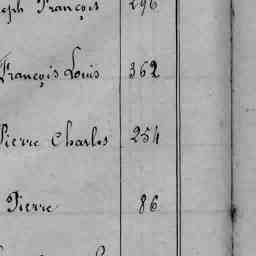 eph François 296
François Louis 362
Pierre Charles 254
Pierre 86